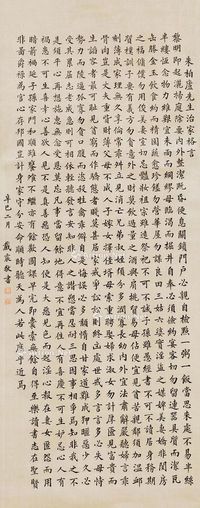 朱柏廬先生治家格言
黎明即起灑掃庭除要內外整潔既昏便息關鎖門戶必親自檢點一粥一飯當思來處不易半絲
半縷恆念物力維艱宜未雨而綢繆毋臨渴而掘井自奉必須儉約宴客切勿留連器具質而潔瓦
缶勝金玉飲食約而精園蔬愈珍饈勿營華屋勿謀良田三姑六婆實淫盜之媒婢美妾嬌非閨房
之福僮僕勿用俊美妻妾切忌豔妝祖宗雖遠祭祀不可不誠子孫雖愚經書不可不讀居身務期
質樸訓子要有義方勿貪意外之財莫飲過量之酒與肩挑貿易毋佔便宜見貧苦親鄰須加溫卹
刻薄成家理無久享倫常乖舛立見消亡兄弟叔姪須分多潤寡長幼內外宜法肅辭嚴聽婦言乖
骨肉豈是丈夫重貲財薄父母不成人子嫁女擇佳壻毋索重聘娶媳求淑女勿計厚奩見富貴而
生諂容者最可恥見貧窮而作驕態者賤莫甚居家戒爭訟訟則終凶處世戒多言言多必失毋恃
勢力而凌逼孤寡勿貪口腹而恣殺牲禽乖僻自是悔誤必多頹惰自甘家道難成狎暱惡少久必
受其累屈志老成急則可相依輕聽發言安知非人之譖愬當忍耐三思因事相爭焉知非我之不
是須平心暗想施惠無念受恩莫忘凡事當留餘地得意不宜再往人有喜慶不可生妒忌心人有
禍患不可生喜幸心善欲人見不是真善惡恐人知便是大惡見色而起淫心報在妻女匿怨而用
暗箭禍延子孫家門和順雖饔飧不繼亦有餘歡國課早完即囊橐無餘自得至樂讀書志在聖賢
爵祿為官心存邦國豈計身家守分安命順時聽天為人若此庶乎近焉
辛巳二月 戴家敬書